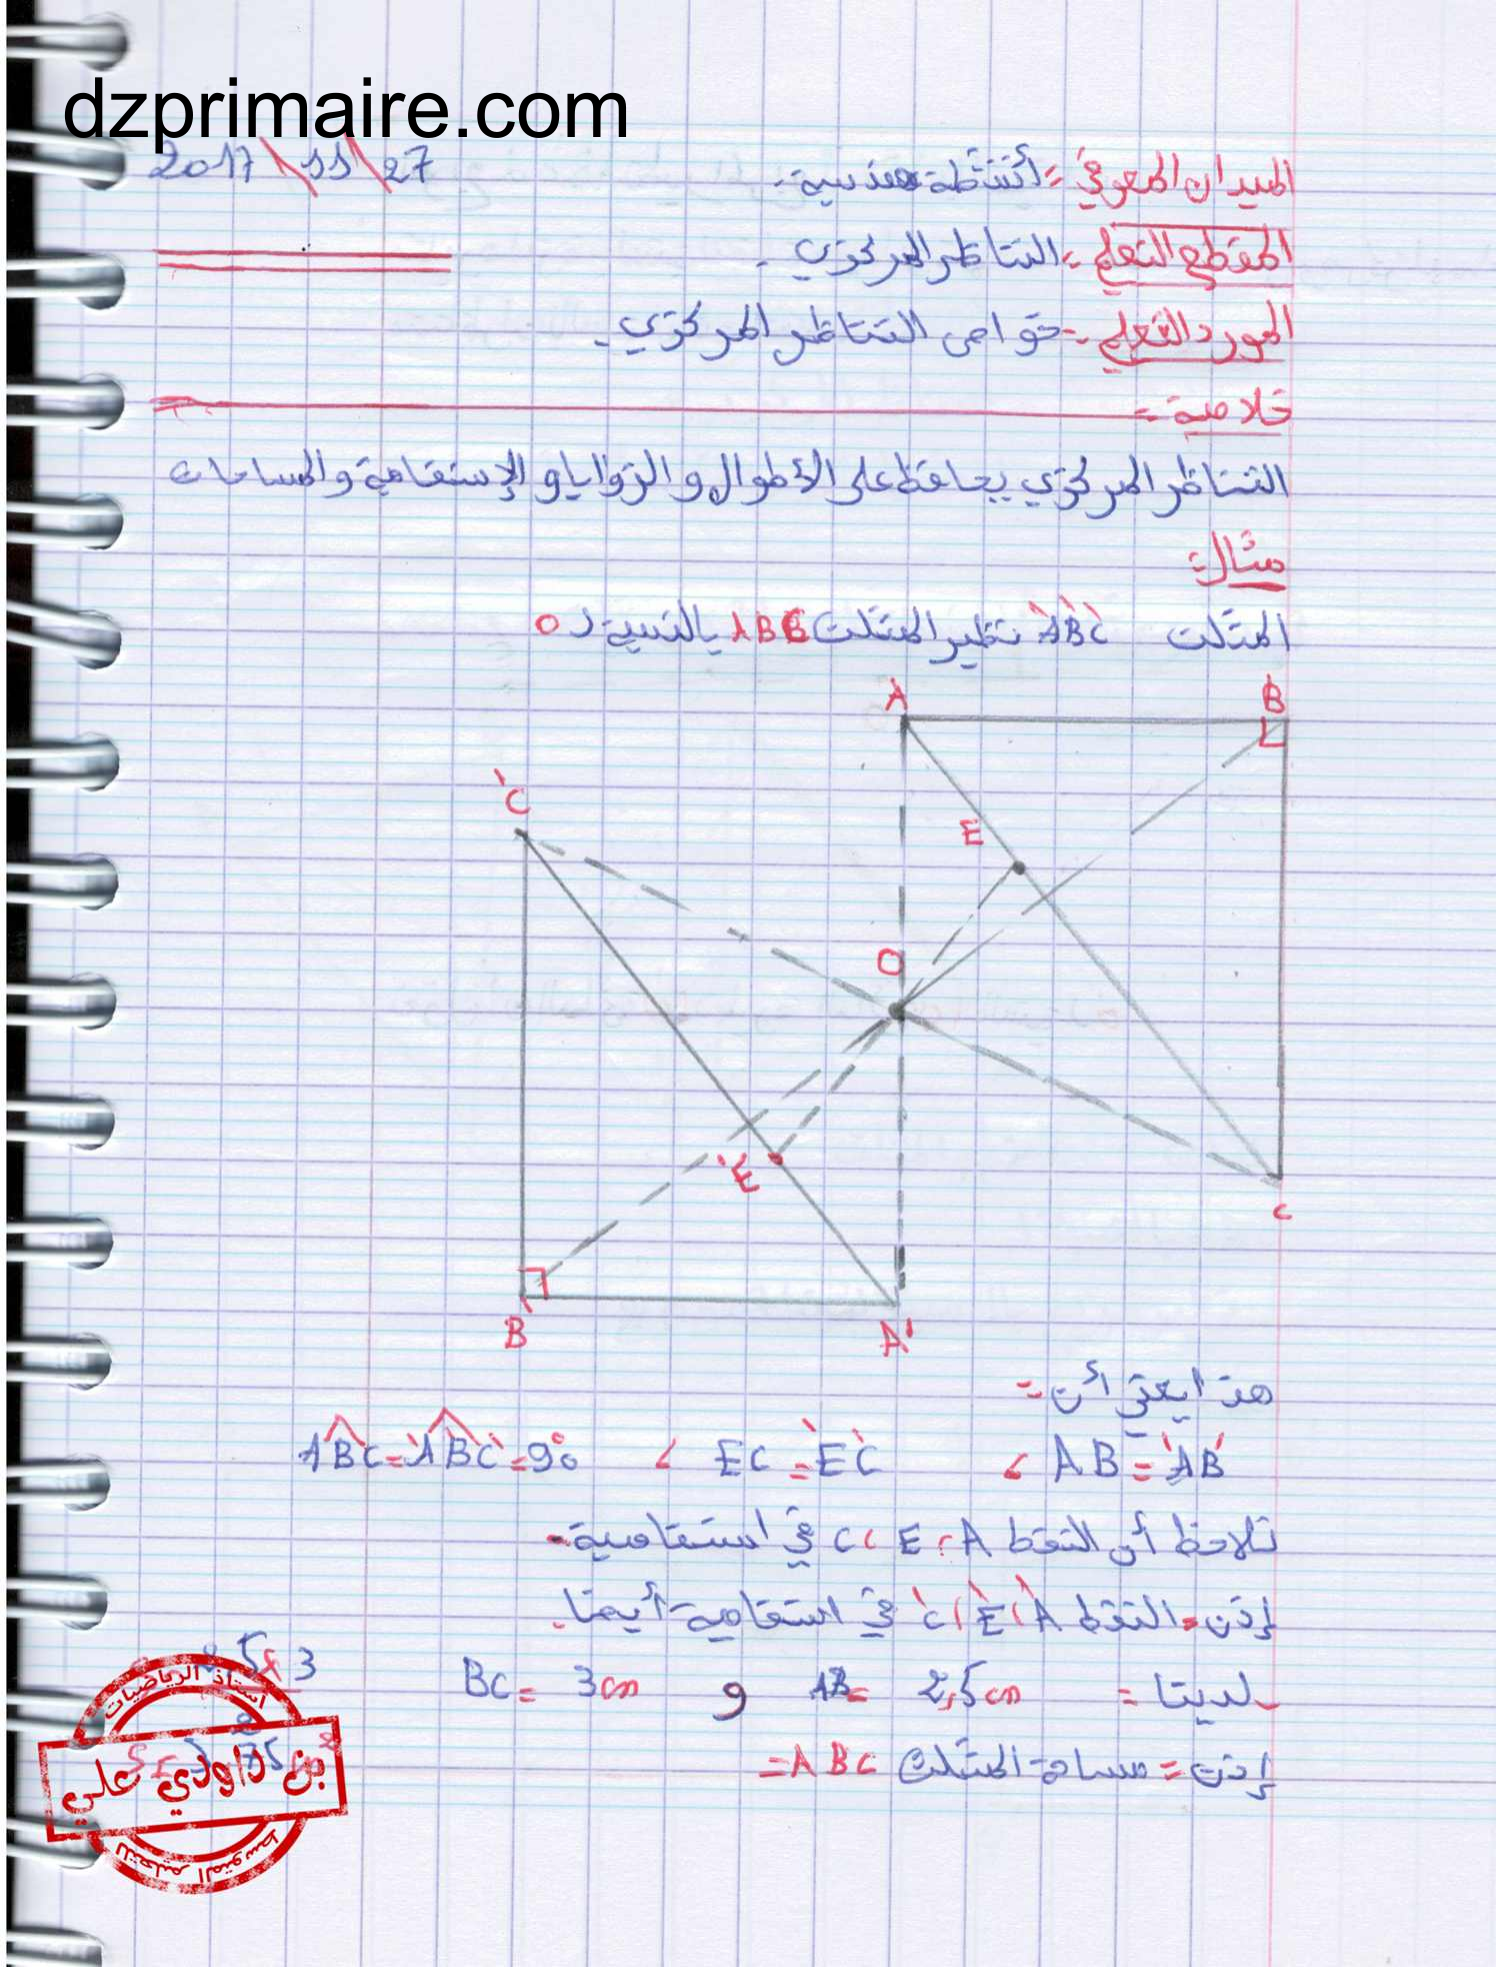 dzprimaire.com
2017\11\27
الميدان المعرفي = أنشطة هندسية.
المقطع التعلمي = التناظر المركزي.
المورد التعلمي = خواص التناظر المركزي.
خلاصة =
التناظر المركزي يحافظ على الأطوال و الزوايا و الإستقامة و المساحات
مثال:
المثلث A'B'C' نظير المثلث ABC بالنسبة لـ O
A B
C'
E
O
E'
C
B' A'
هذا يعني أن =
AB = A'B' ، EC = E'C' ، ABC = A'B'C' = 90°
نلاحظ أن النقط A، E، C في استقامية.
إذن = النقط A'، E'، C' في استقامية أيضا.
لدينا = AB = 2,5 cm و BC = 3 cm
إذن = مساحة المثلث ABC =
أستاذ الرياضيات
بن داودي علي
للتعليم المتوسط